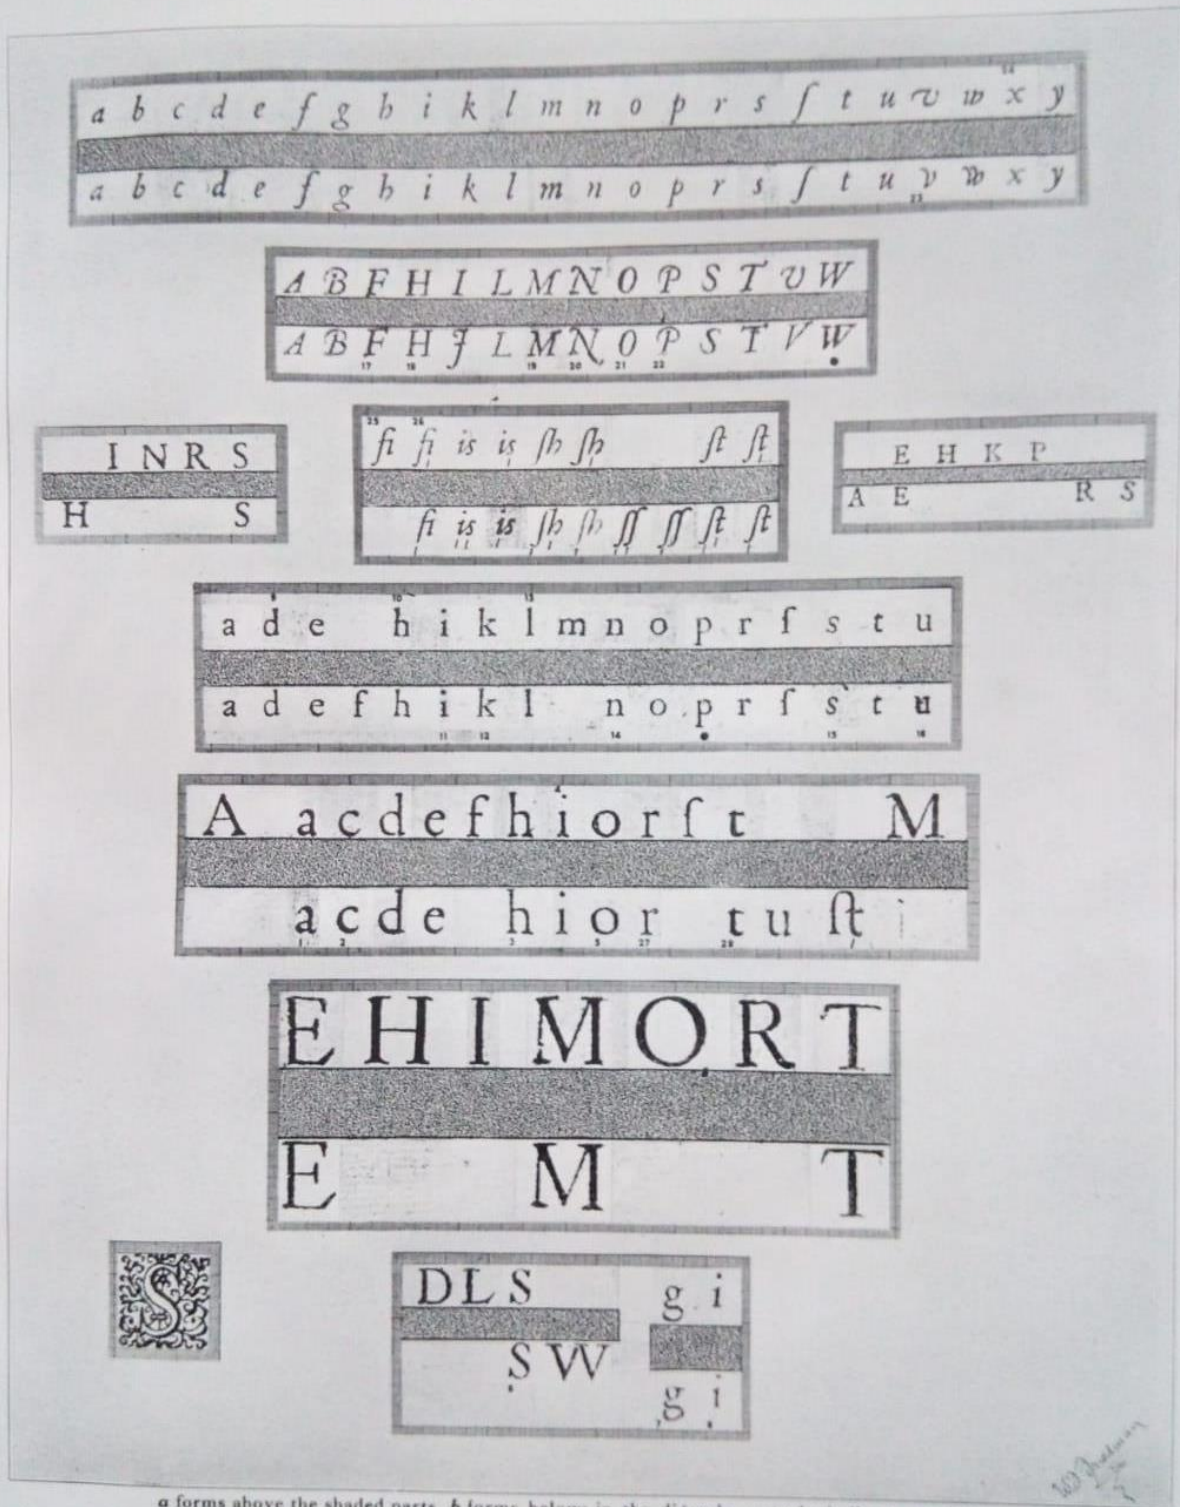 a b c d e f g h i k l m n o p r s ſ t u v w x y
a b c d e f g h i k l m n o p r s ſ t u v w x y
A B F H I L M N O P S T U W
A B F H J L M N O P S T V W
17 18 19 20 21 22
I N R S
H S
25 26
fi fi is is ſh ſh ſt ſt
fi is is ſh ſh ſſ ſſ ſt ſt
E H K P
A E R S
a d e h i k l m n o p r ſ s t u
a d e f h i k l n o p r ſ s t u
11 12 14 15 16
A a c d e f h i o r ſ t M
a c d e h i o r t u ſt i
1 2 3 5 27 28
E H I M O R T
E M T
S
D L S
S W
g i
g i
a forms above the shaded parts, b forms below